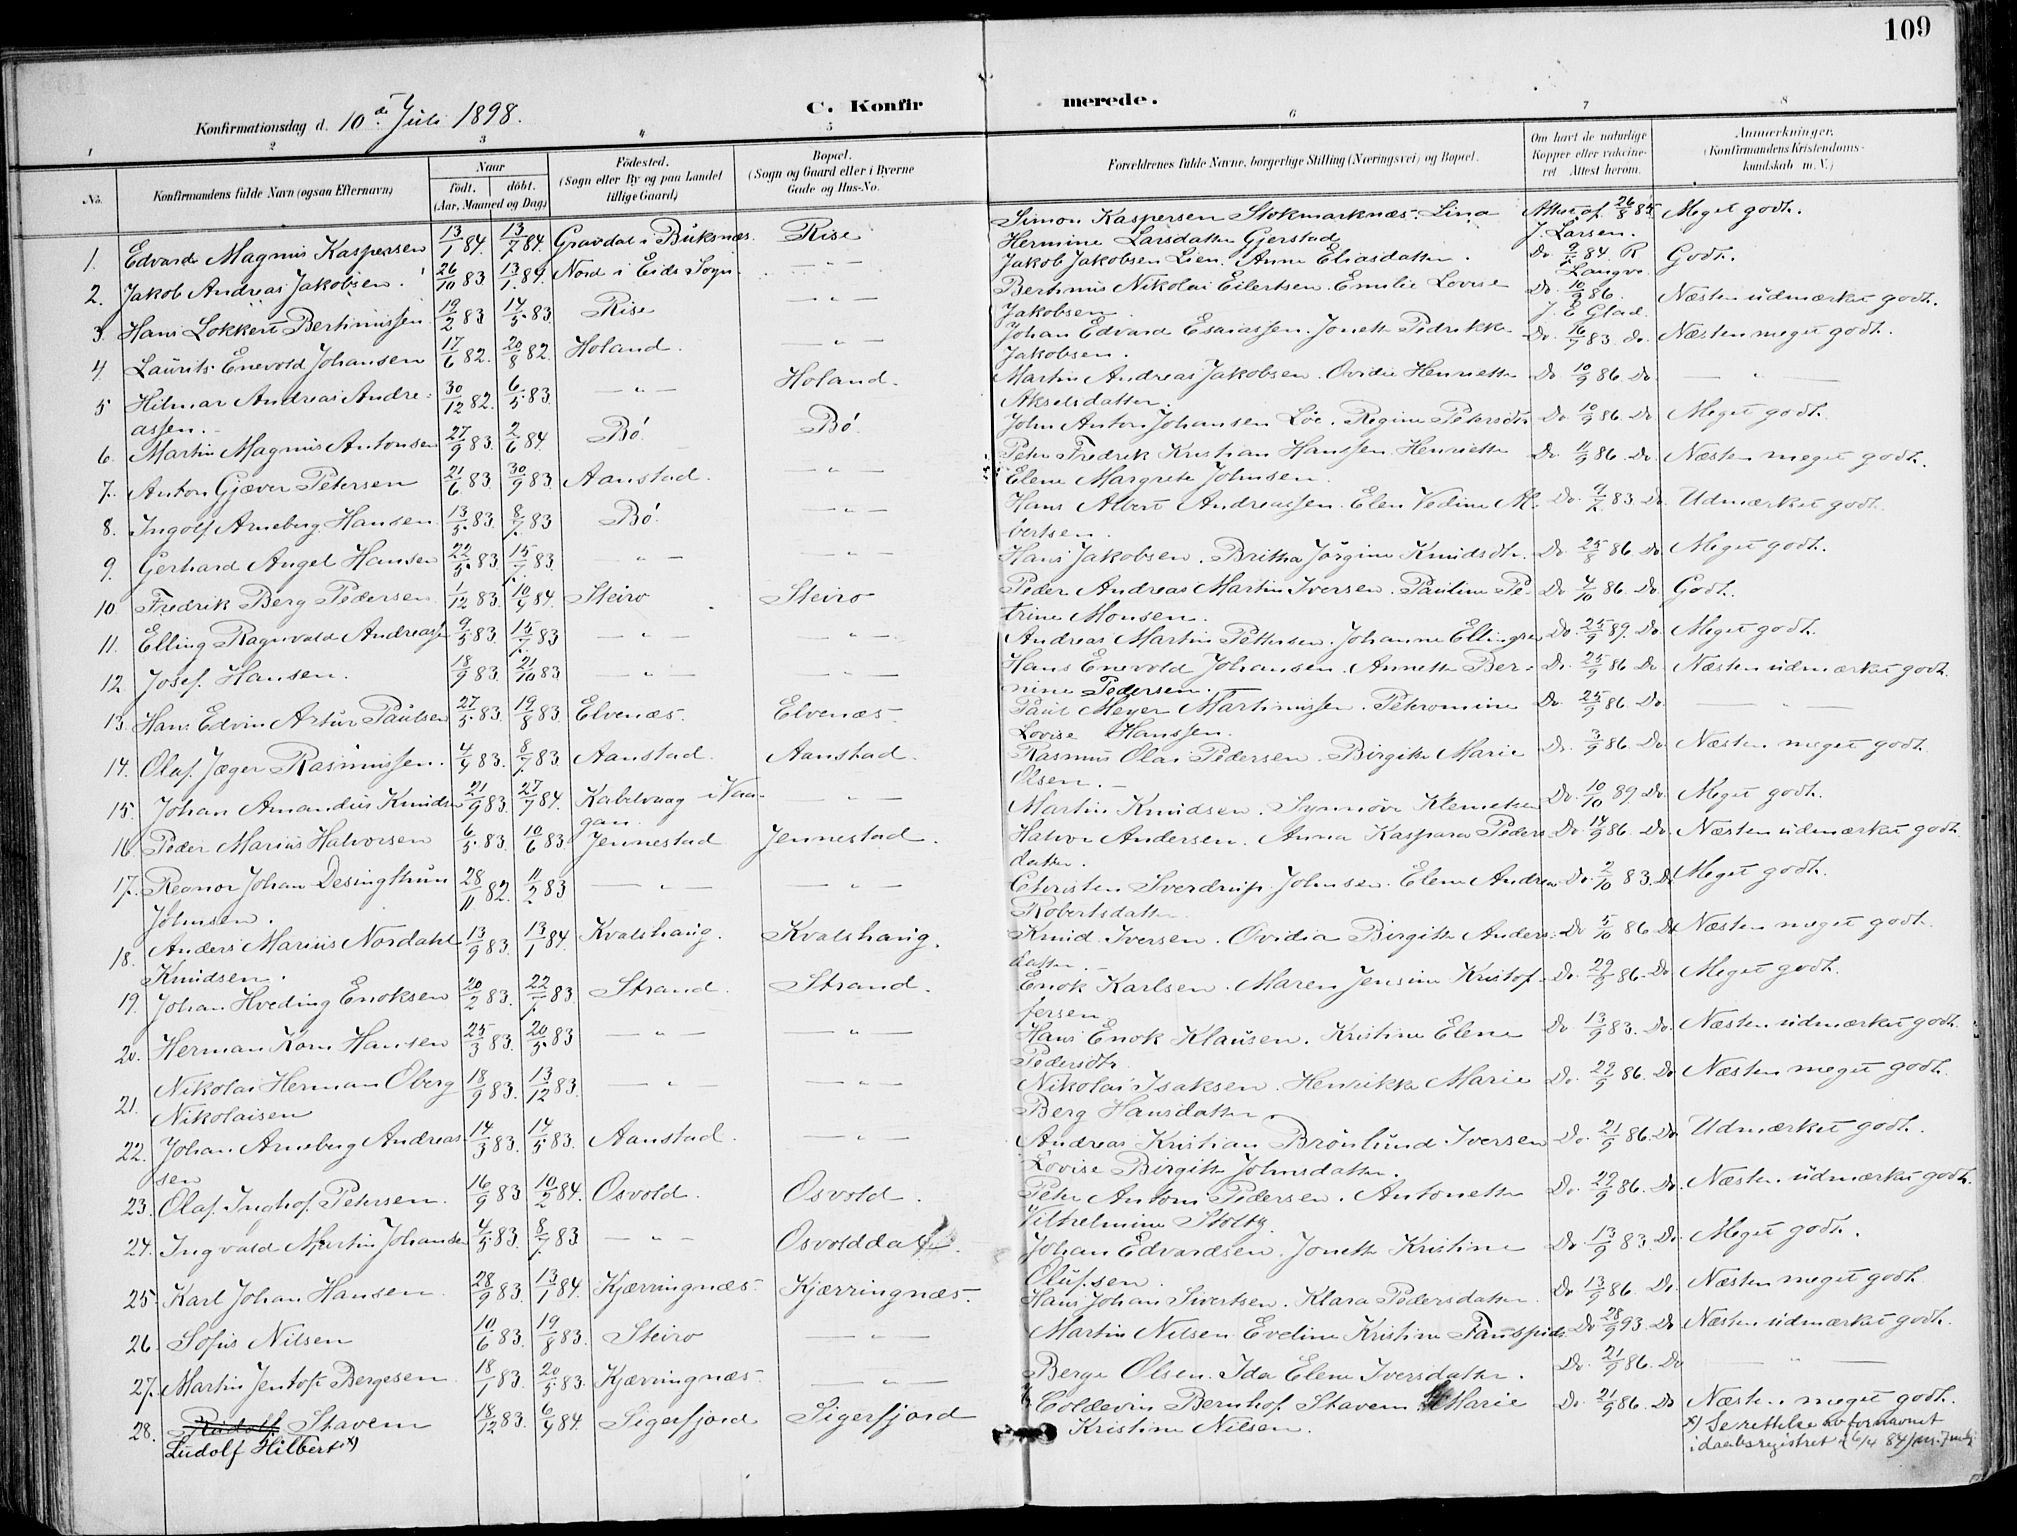 109
C. Konfirmerede.
Konfirmationsdag d. 10de Juli 1898.
1 2 3 4 5 6 7 8
No. Konfirmandens fulde Navn (ogsaa Efternavn) Naar født. døbt. (Aar, Maaned og Dag) Fødested. (Sogn eller By og paa Landet tillige Gaard) Bopæl. (Sogn og Gaard eller i Byerne Gade og Hus-No. Forældrenes fulde Navne, borgerlige Stilling (Næringsvei) og Bopæl. Om havt de naturlige Kopper eller vaccineret Attest herom. Anmærkninger. (Konfirmandens Kristendomskundskab m. V.)
1. Edvard Magnus Kaspersen 13/1 84. 13/7 84. Gravdal i Buksnæs. Rise Simon Kaspersen Stokmarknæs. Lina Hermine Larsdatter Gjerstad Attest af 26/8 85 J. Larsen. Meget godt.
2. Jakob Andreas Jakobsen 26/10 83 13/1 84. Nord i Eids Sogn — " — Jakob Jakobsen Lien. Anne Eliasdatter. Do 84 R Langvo Godt.
3. Hans Lokkert Bertinussen 19/2 83 14/5 83 Rise — " — Bertinus Nikolai Eilertsen. Emilie Lovise Jakobsen Do 10/9 86. J. E Glad. Næsten udmærket godt.
4. Laurits Enevold Johansen 17/6 82. 20/8 82. Holand. — " — Johan Edvard Esaiassen. Jonette Pedrikke Jakobsen. Do 83. do. Næsten meget godt.
5 Hilmar Andreas Andreassen. 30/12 82. 6/5 83 — " — Holand. Martin Andreas Jakobsen. Ovidie Henriette Akselsdatter. Do 10/9 86. Do. — " —
6. Martin Magnus Antonsen 27/9 83. 2/6 84. Bö Bö John Anton Johansen Löe. Regine Petersdtr Do 10/9 86. Do Meget godt.
7. Anton Gjæver Petersen 21/6 83. 30/9 83. Aanstad. — " — Peter Fredrik Kristian Hanssen. Henriette Elene Margrete Johnsen. Do 11/9 86. Do. Næsten meget godt.
8. Ingolf Arneberg Hansen 13/5 83. 8/7 83 Bö. — " — Hans Albert Andreassen. Elen Vedine Albertsen. Do. 83 Do Udmærket godt.
9. Gerhard Angel Hansen 22/5 83. 15/7 83. — " — — " — Hans Jakobsen. Britha Jörgine Knudsdtr. Do. 25/8 86. Do Meget godt.
10 Fredrik Berg Pedersen 1/12 83. 84. Steiro Steiro Peder Andreas Martin Iversen. Pauline Petrine Monsen. Do 4/10 86. Do Godt.
11. Elling Ragnvald Andreassen 9/5 83. 15/7 83 — " — — " — Andreas Martin Pettersen. Johanne Ellingsen Do. 89. Do. Meget godt.
12. Josef Hansen. 18/9 83. 21/10 83 — " — — " — Hans Enevold Johansen. Annette Bernine Pedersen. Do. 25/9 86 Do Næsten udmærket godt.
13. Hans Edvin Artur Paulsen 27/5 83. 19/8 83. Elvenæs. Elvenæs. Paul Meyer Martinussen. Petromine Lovise Hanssen. Do 25/9 86 Do — " —
14. Olaf Jæger Rasmussen. 83. 8/7 83. Aanstad. Aanstad. Rasmus Olai Pedersen. Birgitte Marie Olsen. Do. 3/9 86. Do. Næsten meget godt.
15. Johan Amandus Knudsen 21/9 83. 27/7 84. Kabelvaag i Vaagan. — " — Martin Knudsen. Synnöve Klemetsen Do. 10/10 89 Do. Meget godt.
16. Peder Marius Halvorsen 6/5 83. 10/6 83. Jennestad Jennestad. Halvor Andersen. Anna Kaspara Pedersdatter. Do. 14/9 86. Do. Næsten udmærket godt.
17. Reonor Johan Desingthun Johnsen. 28/11 82. 11/2 83 — " — — " — Christen Sverdrup Johnsen. Elene Andrea Robertsdatter. Do. 2/10 83. Do Meget godt.
18. Anders Marius Nordahl Knudsen. 13/9 83. 13/1 84. Kvalshaug. Kvalshaug. Knud Iversen. Ovidia Birgitte Andersdatter. Do 5/10 86 Do Næsten meget godt.
19. Johan Hveding Enoksen 20/2 83. 22/7 83. Strand. Strand. Enok Karlsen. Maren Jensine Kristoffersen Do. 86. Do Meget godt.
20. Herman Korn Hansen 25/3 83. 20/5 83 — " — — " — Hans Enok Klausen. Kristine Elene Pedersdtr. Do 13/9 83. Do. Næsten udmærket godt.
21. Nikolai Herman Oberg Nikolaisen 18/9 83. 13/12 83. — " — — " — Nikolai Isaksen. Henrikke Marie Berg Hansdatter. Do. 86. Do Næsten meget godt.
22. Johan Arneberg Andreassen 14/3 83. 14/5 83. Aanstad. — " — Andreas Kristian Brönlund Iversen Lovise Birgitte Johnsdatter. Do. 21/9 86. Do Udmærket godt.
23. Olaf Inghof Petersen. 16/9 83 10/2 84. Osvold. Osvold. Peter Antoni Pedersen. Antonette Vilhelmine Stoltz. Do. 86. Do. Næsten udmærket godt.
24. Ingvald Martin Johansen 4/5 83. 8/7 83 — " — Osvolddal. Johan Edvardsen. Jonette Kristine Olufsen. Do. 13/9 83. Do. Meget godt.
25. Karl Johan Hansen. 28/9 83. 13/1 84. Kjærringnæs. Kjærringnæs. Hans Johan Sivertsen. Klara Pedersdatter. Do 13/9 86. Do. Næsten meget godt.
26. Sofus Nilsen 10/6 83. 19/8 83. Steiro — " — Martin Nilsen. Eveline Kristine Do 28/9 93. Do Næsten udmærket godt.
27. Martin Jentoft Bergesen 18/1 83. 20/5 83. Kjærringnæs. — " — Berge Olsen. Ida Elene Iversdatter. Do. 21/9 86. Do — " —
28. Rudolf Stavem Ludolf Hilbert x) 18/12 83. 84. Sigerfjord Sigerfjord Coldevin Bernhof Stavem Marie Kristine Nilsen. Do. 21/9 86. Do Næsten meget godt.
x) Se rettelse av fornavnet i daabsregistret 6/4 84